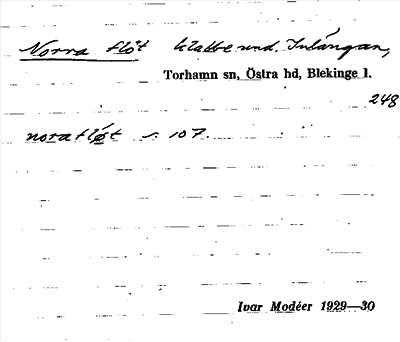 Norra flöt klabbe und. Inlängan,
Torhamn sn, Östra hd, Blekinge l.
248
norafløt s. 107.
Ivar Modéer 1929—30